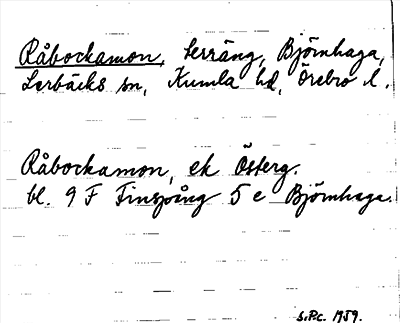 Råbockamon, terräng, Björnhaga,
Lerbäcks sn, Kumla hd, Örebro l.
Råbockamon, ek Österg.
bl. 9 F Finspång 5 e Björnhaga.
S.P.c. 1959.